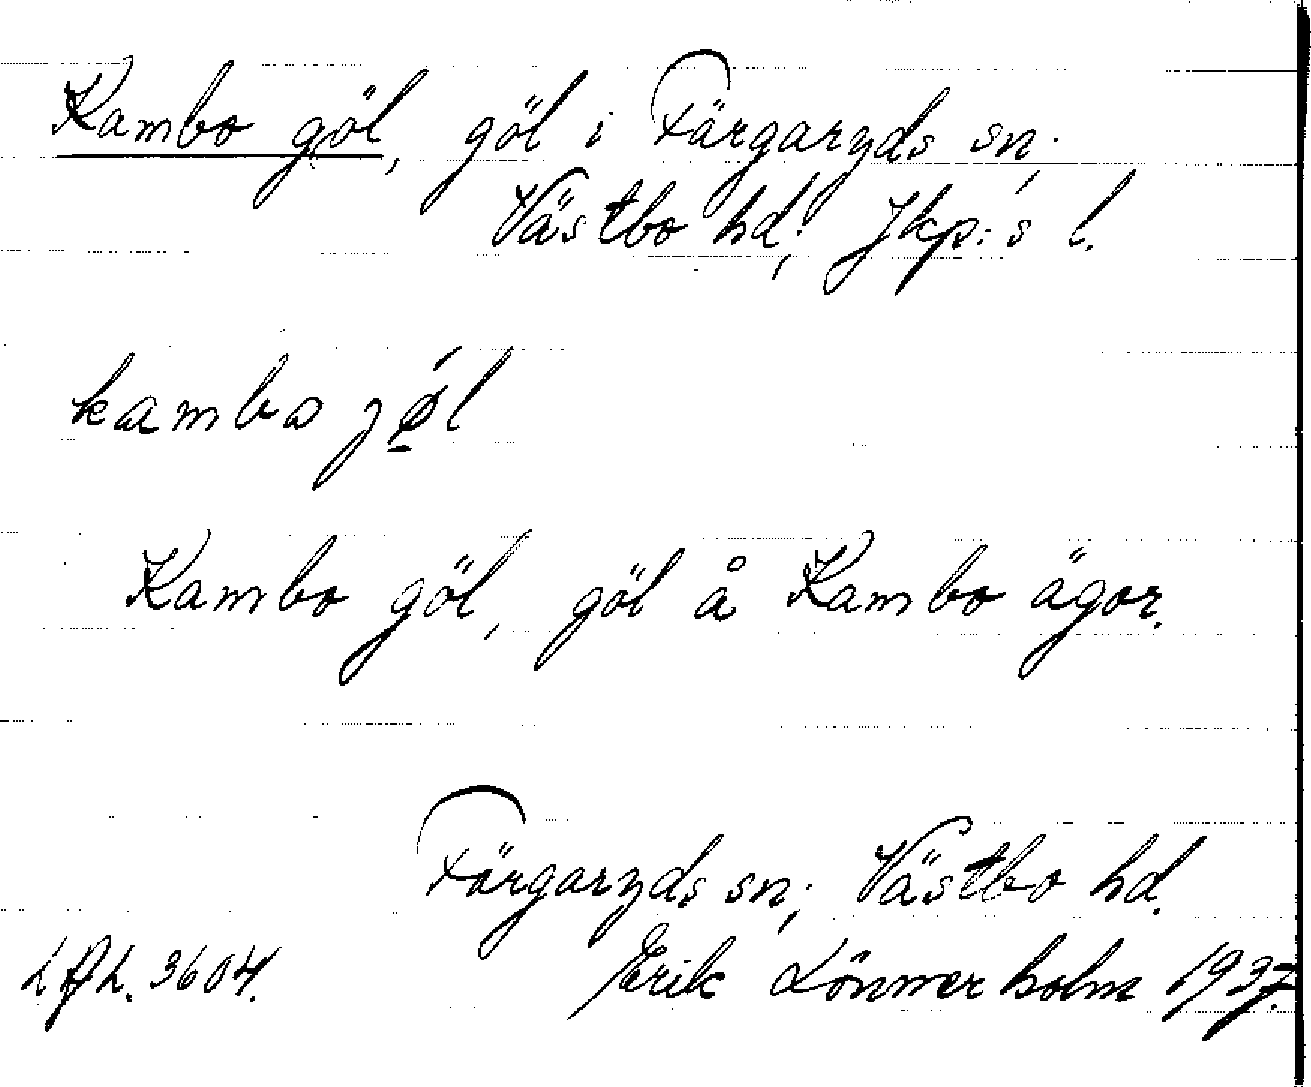 Kambo göl, göl i Färgaryds sn;
Västbo hd; Jkp:s l.
kambo jǿ̱l
Kambo göl, göl å Kambo ägor.
Färgaryds sn; Västbo hd.
3604. Erik Lönnerholm 1937.